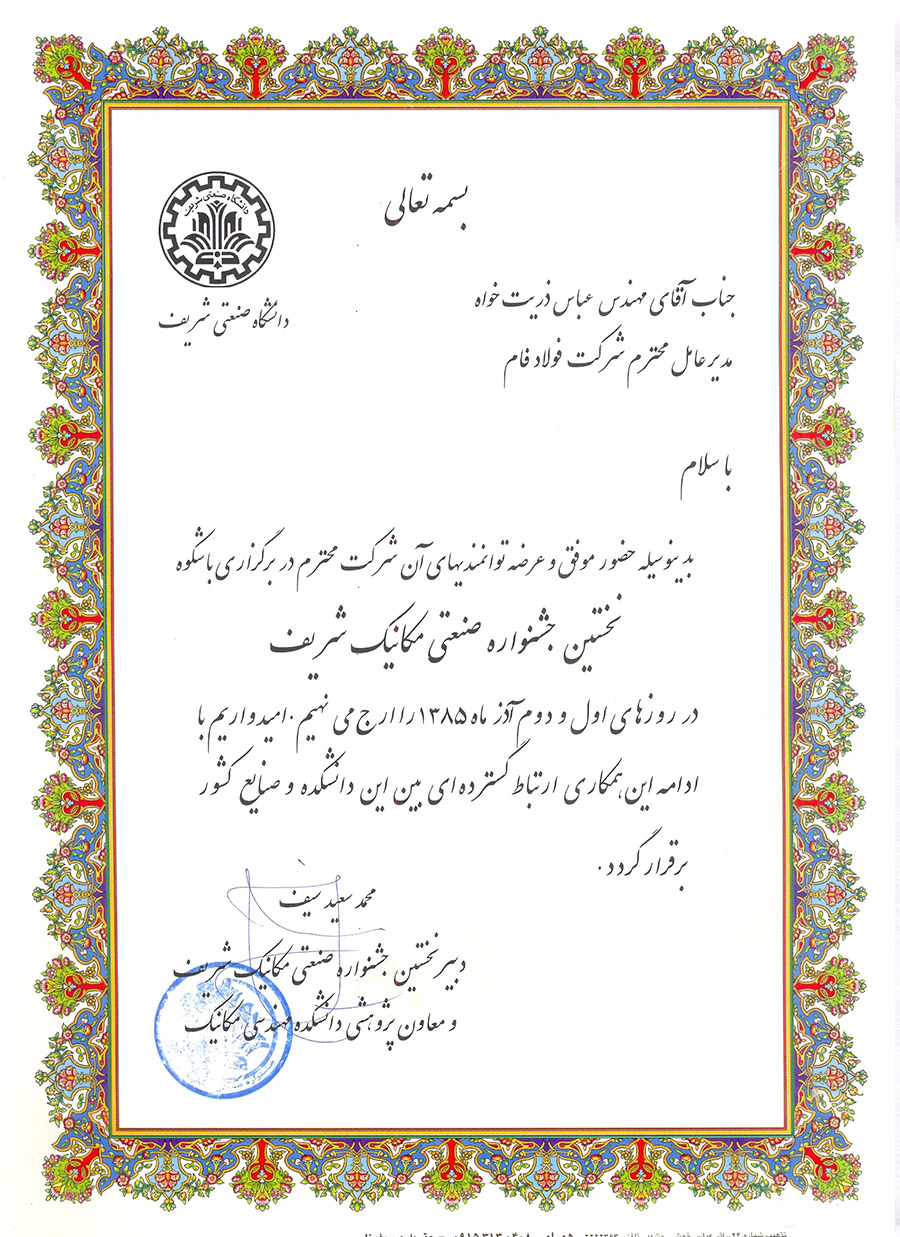 بسمه تعالی
دانشگاه صنعتی شریف
دانشگاه صنعتی شریف
جناب آقای مهندس عباس ذریت خواه
مدیر عامل محترم شرکت فولاد فام
با سلام
بدینوسیله حضور موفق و عرضه توانمندیهای آن شرکت محترم در برگزاری باشکوه
نخستین جشنواره صنعتی مکانیک شریف
در روزهای اول و دوم آذر ماه ۱۳۸۵ را ارج می نهیم . امیدواریم با
ادامه این همکاری ارتباط گسترده ای بین این دانشکده و صنایع کشور
برقرار گردد .
محمد سعید سیف
دبیر نخستین جشنواره صنعتی مکانیک شریف
و معاون پژوهشی دانشکده مهندسی مکانیک